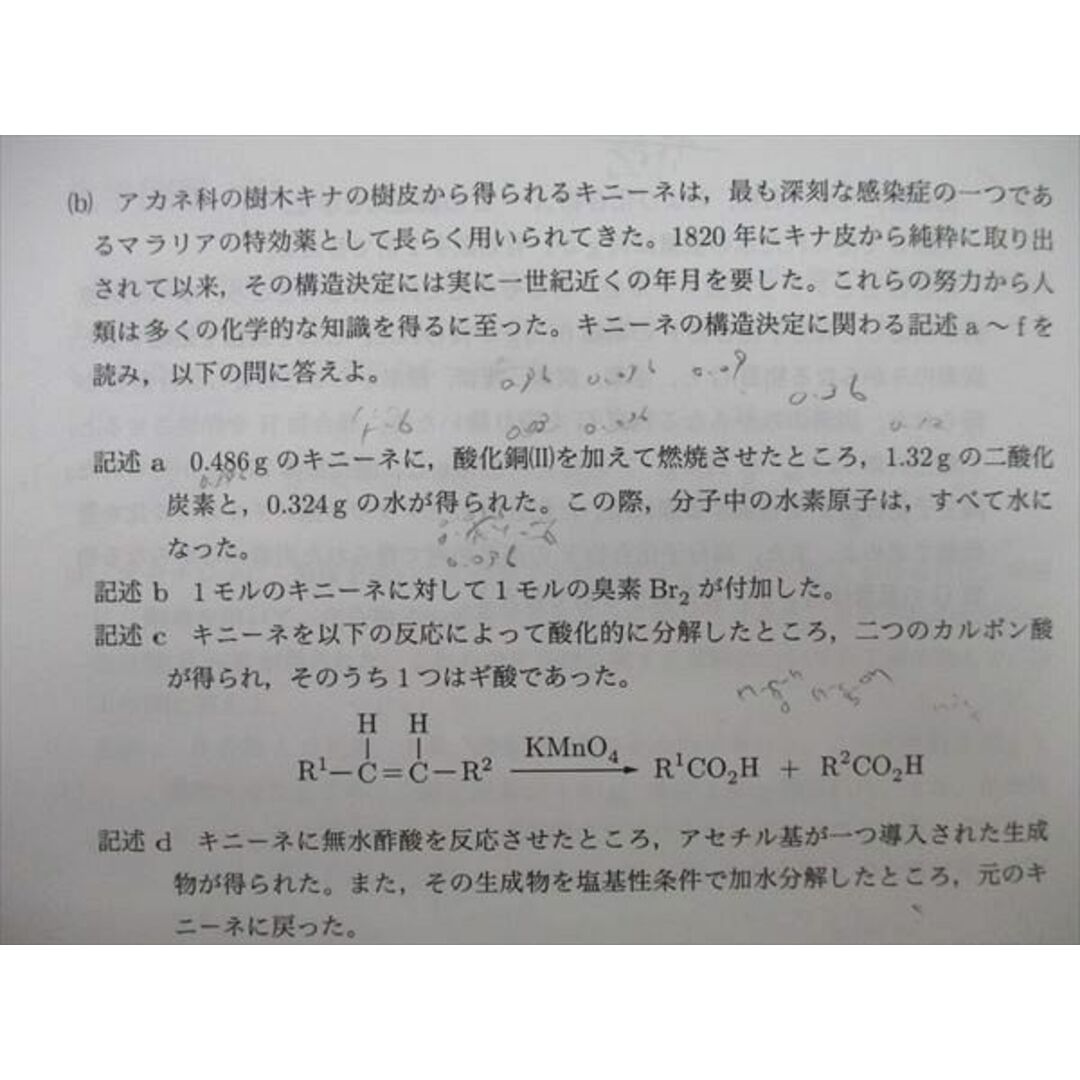 (b) アカネ科の樹木キナの樹皮から得られるキニーネは，最も深刻な感染症の一つであ
るマラリアの特効薬として長らく用いられてきた。1820 年にキナ皮から純粋に取り出
されて以来，その構造決定には実に一世紀近くの年月を要した。これらの努力から人
類は多くの化学的な知識を得るに至った。キニーネの構造決定に関わる記述 a ～ f を
読み，以下の問に答えよ。
記述 a 0.486 g のキニーネに，酸化銅(II)を加えて燃焼させたところ，1.32 g の二酸化
炭素と，0.324 g の水が得られた。この際，分子中の水素原子は，すべて水に
なった。
記述 b 1 モルのキニーネに対して 1 モルの臭素 Br₂ が付加した。
記述 c キニーネを以下の反応によって酸化的に分解したところ，二つのカルボン酸
が得られ，そのうち 1 つはギ酸であった。
H H
R¹—C=C—R² KMnO₄ → R¹CO₂H + R²CO₂H
記述 d キニーネに無水酢酸を反応させたところ，アセチル基が一つ導入された生成
物が得られた。また，その生成物を塩基性条件で加水分解したところ，元のキ
ニーネに戻った。